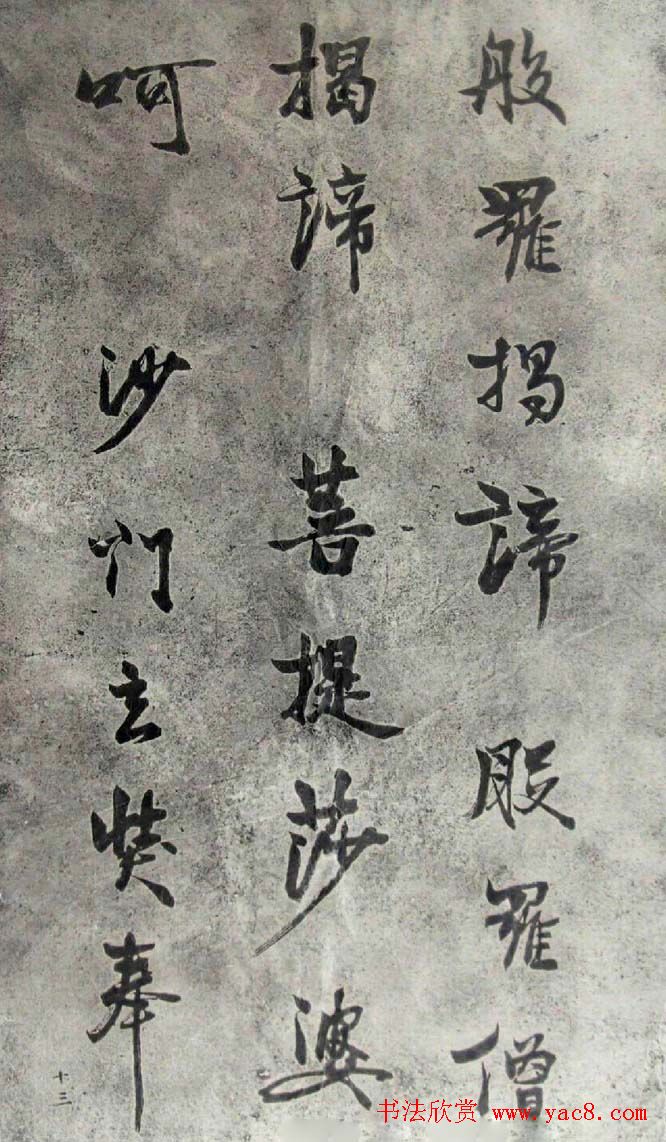 般羅揭諦 般羅僧
揭諦 菩提莎婆
呵 沙門玄奘奉
十三
书法欣赏 www.yac8.com